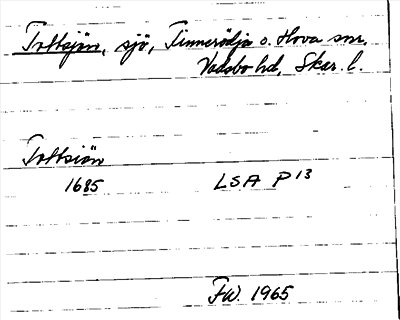 Toltsjön, sjö, Tinnerödja o. Hova snr,
Vadsbo hd, Skar. l.
Toltsiön
1685 LSA P 13
FW. 1965